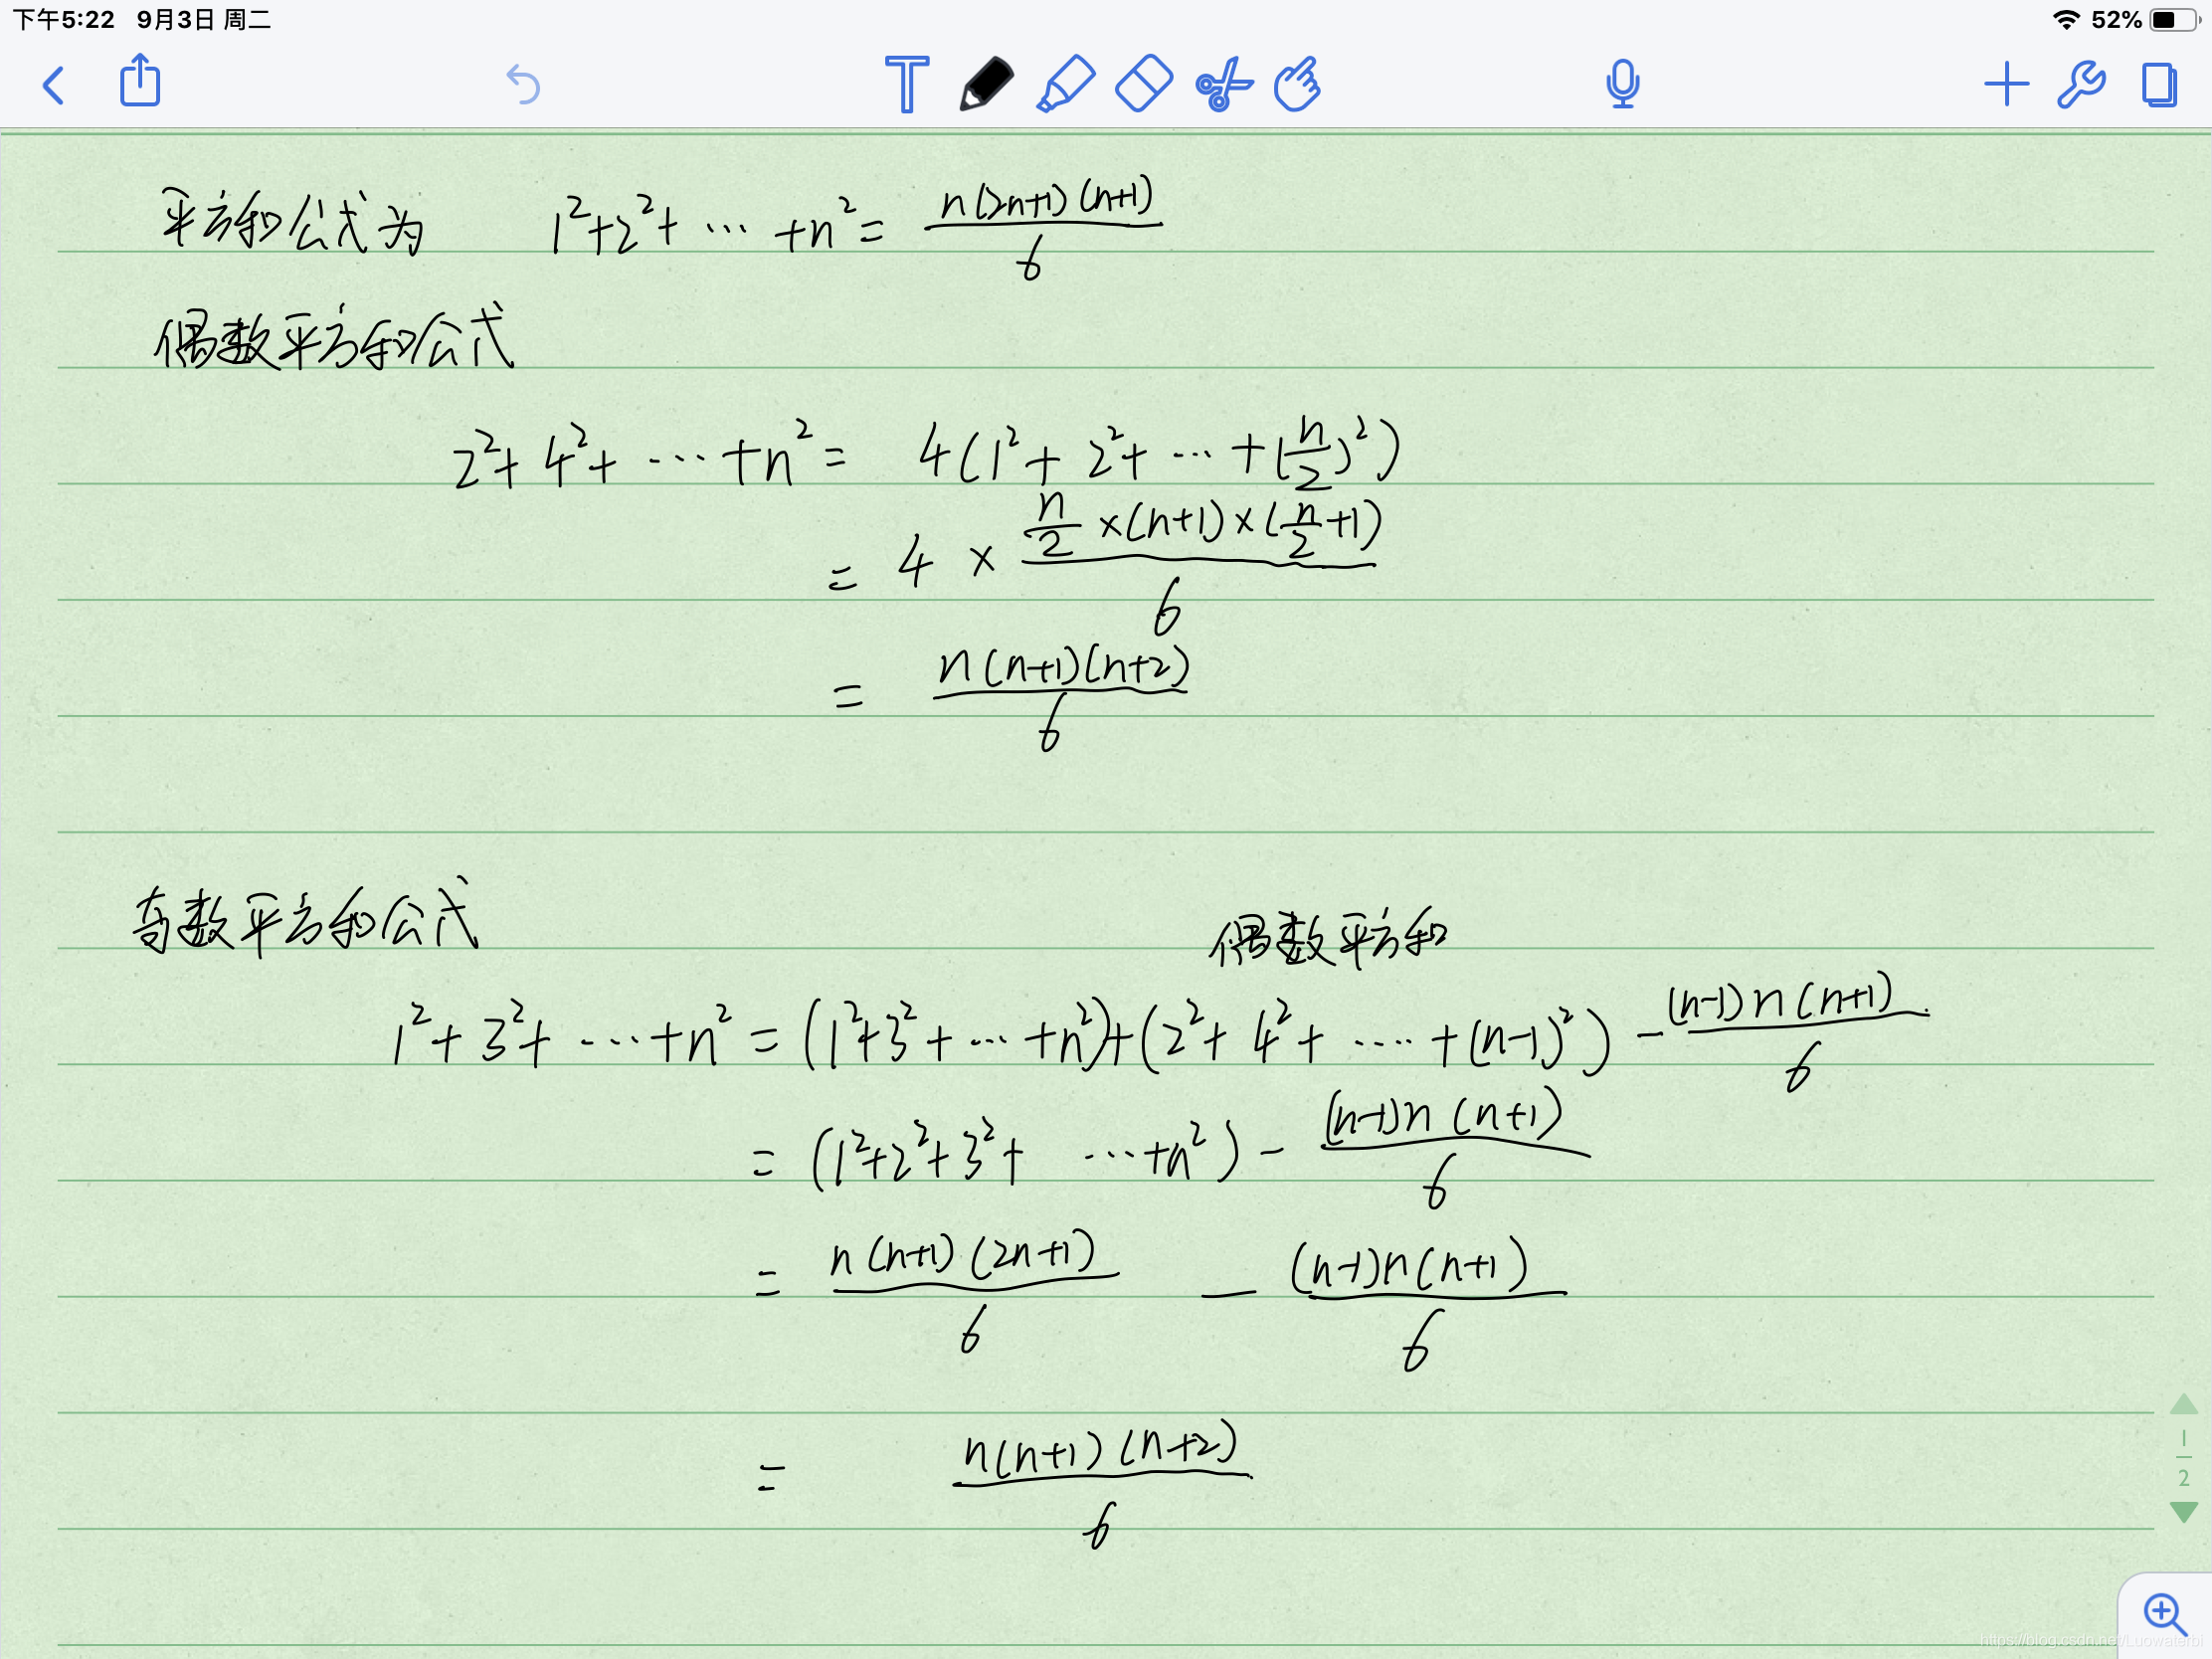 下午5:22 9月3日 周二
52%
平方和公式为 1²+2²+ ⋯ +n² = n(2n+1)(n+1)/6
偶数平方和公式
2²+ 4²+ ⋯ +n² = 4(1²+ 2²+ ⋯ +(n/2)²)
= 4 × (n/2 ×(n+1)×(n/2+1))/6
= n(n+1)(n+2)/6
奇数平方和公式
偶数平方和
1²+ 3²+ ⋯ +n² = (1²+3²+ ⋯ +n²)+(2²+ 4²+ ⋯⋅ +(n-1)²) - (n-1)n(n+1)/6
= (1²+2²+3²+ ⋯ +n²) - (n-1)n(n+1)/6
= n(n+1)(2n+1)/6 - (n-1)n(n+1)/6
= n(n+1)(n+2)/6
1
2
https://blog.csdn.net/Luowaterbi